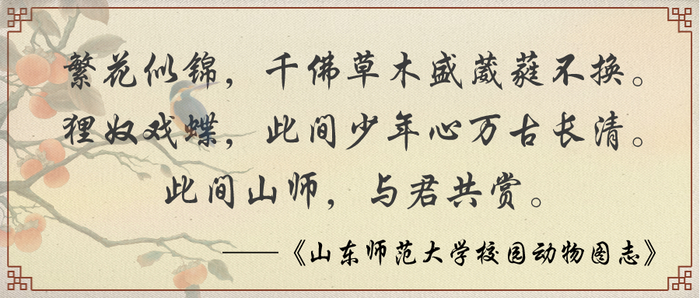 繁花似锦，千佛草木盛葳蕤不换。
狸奴戏蝶，此间少年心万古长清。
此间山师，与君共赏。
——《山东师范大学校园动物图志》